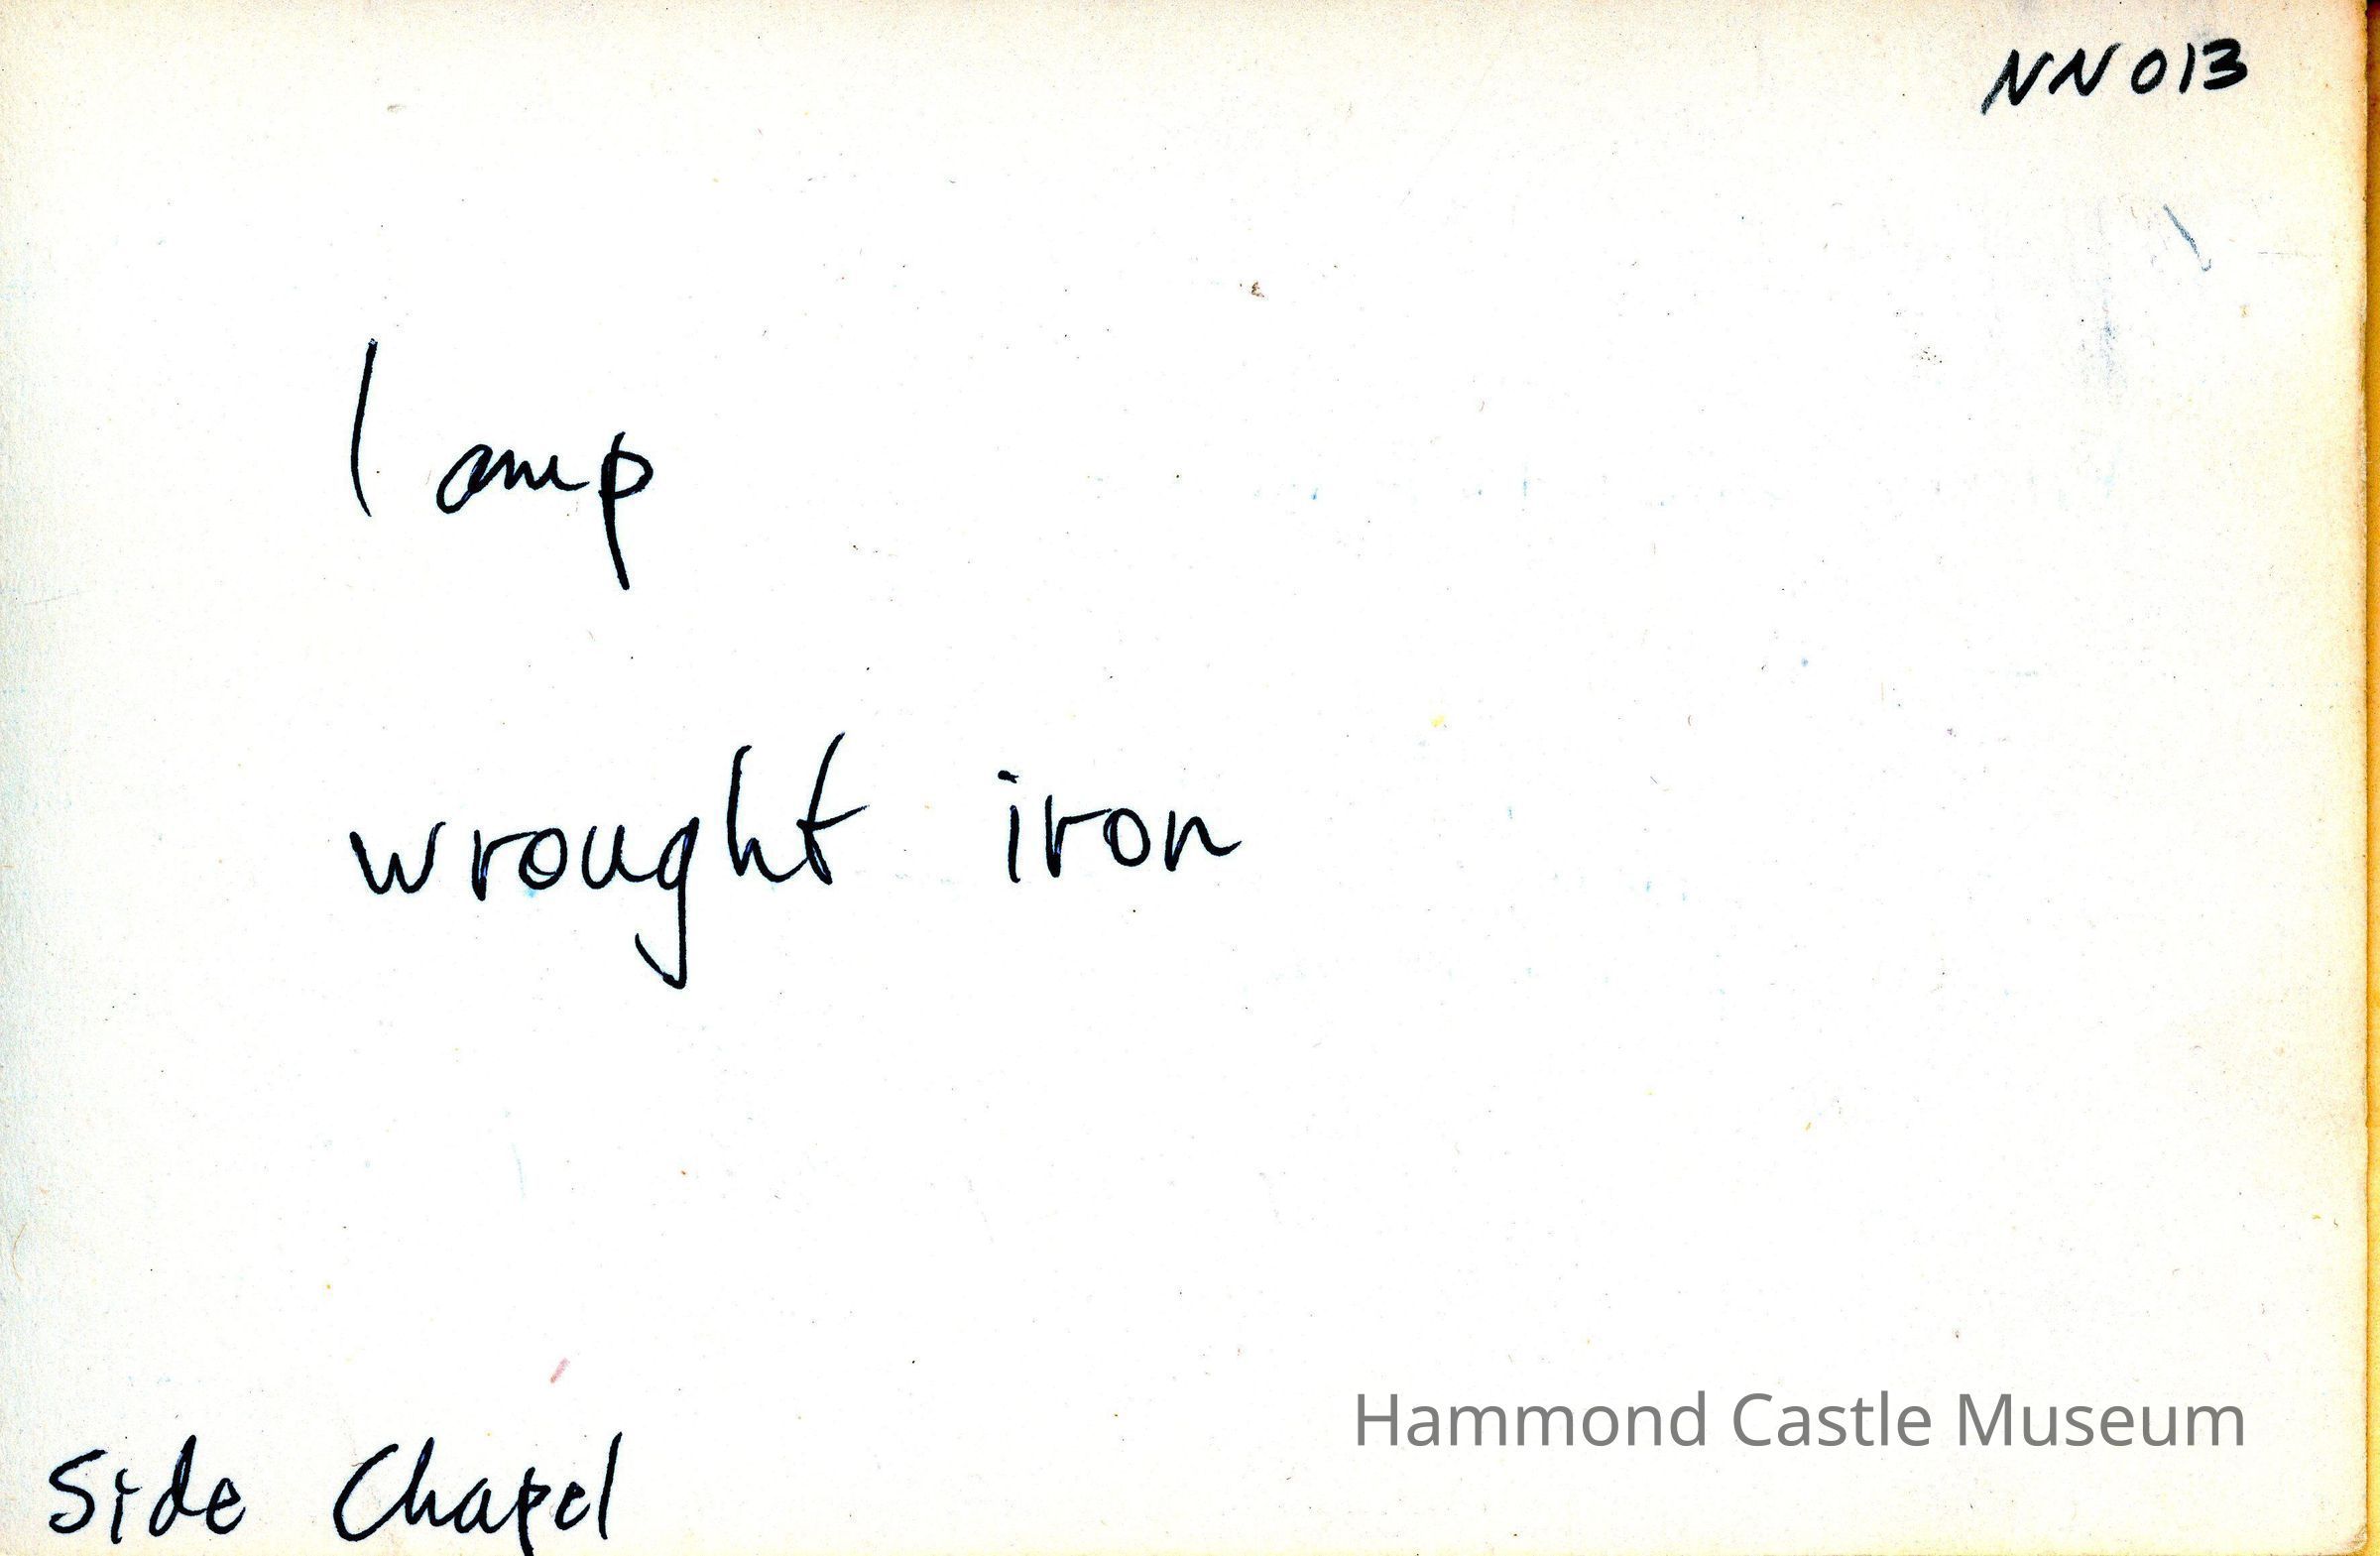 NN013
lamp
wrought iron
Hammond Castle Museum
Side Chapel